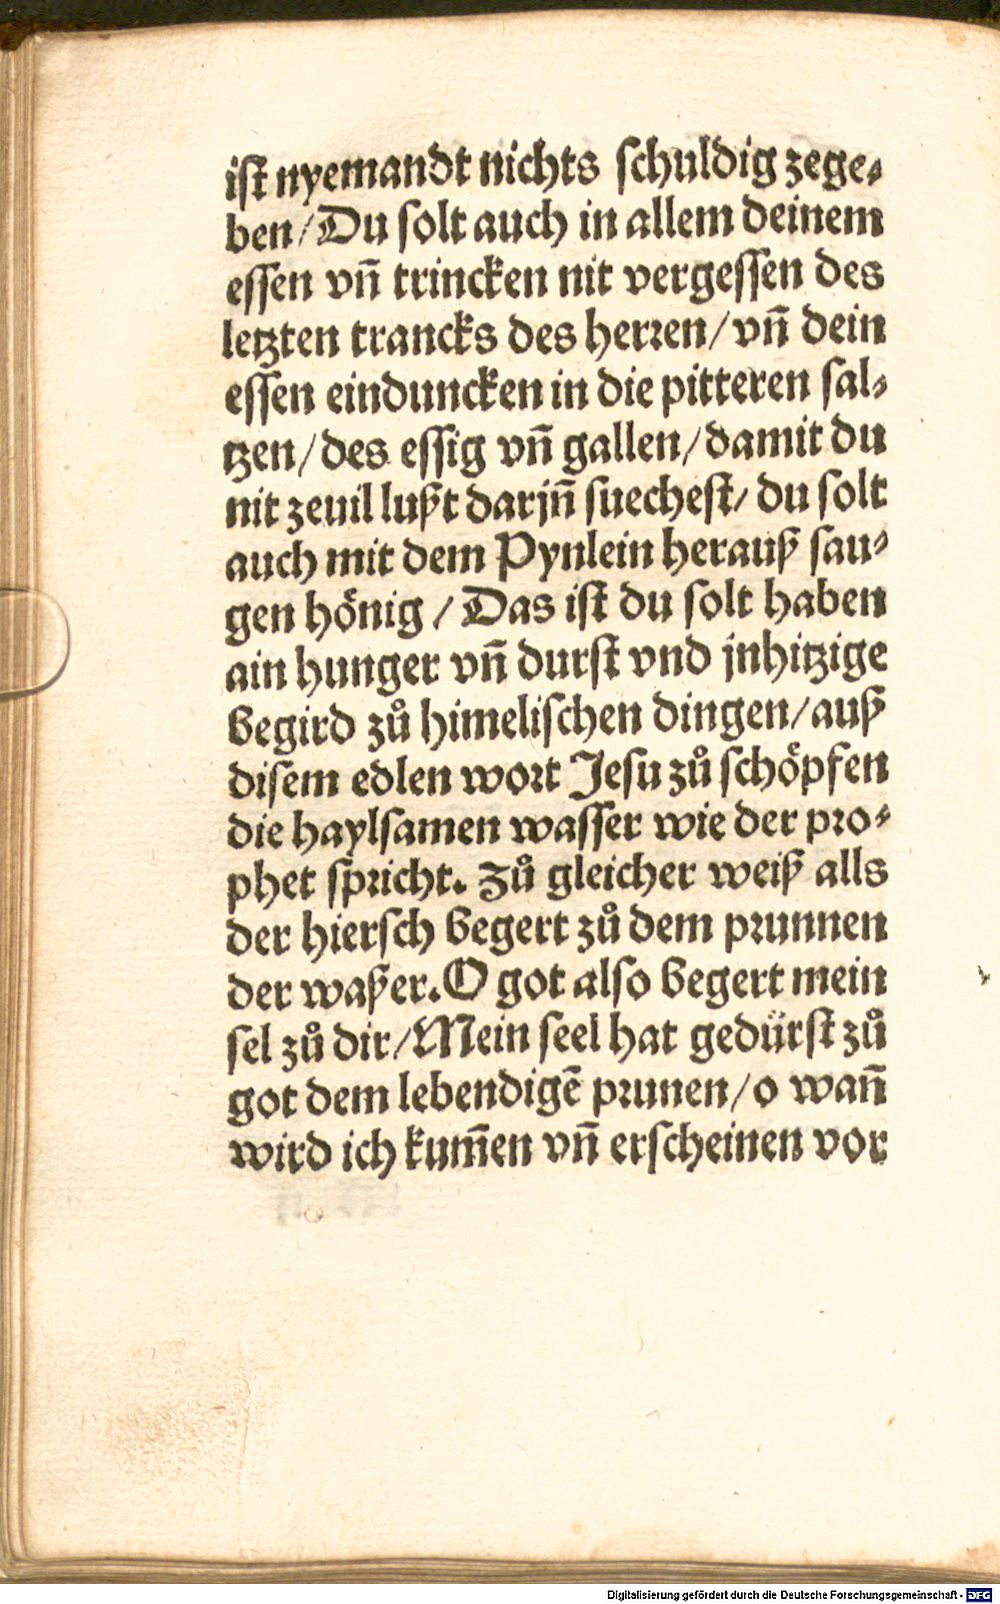 ist nyemandt nichts schuldig zege-
ben/Du solt auch in allem deinem
essen vñ trincken nit vergessen des
letzten trancks des herren/vñ dein
essen einduncken in die pitteren sal-
tzen/des essig vñ gallen/damit du
nit zeuil lußt darjñ suechest/du solt
auch mit dem Pynlein herauß sau-
gen hönig/Das ist du solt haben
ain hunger vñ durst vnd jnhitzige
begird zů himelischen dingen/auß
disem edlen wort Jesu zů schöpfen
die haylsamen wasser wie der pro-
phet spricht. Zů gleicher weiß alls
der hiersch begert zů dem prunnen
der waßer. O got also begert mein
sel zů dir/Mein seel hat gedürst zů
got dem lebendigē prunen/o wañ
wird ich kum̄en vñ erscheinen vor
Digitalisierung gefördert durch die Deutsche Forschungsgemeinschaft - DFG